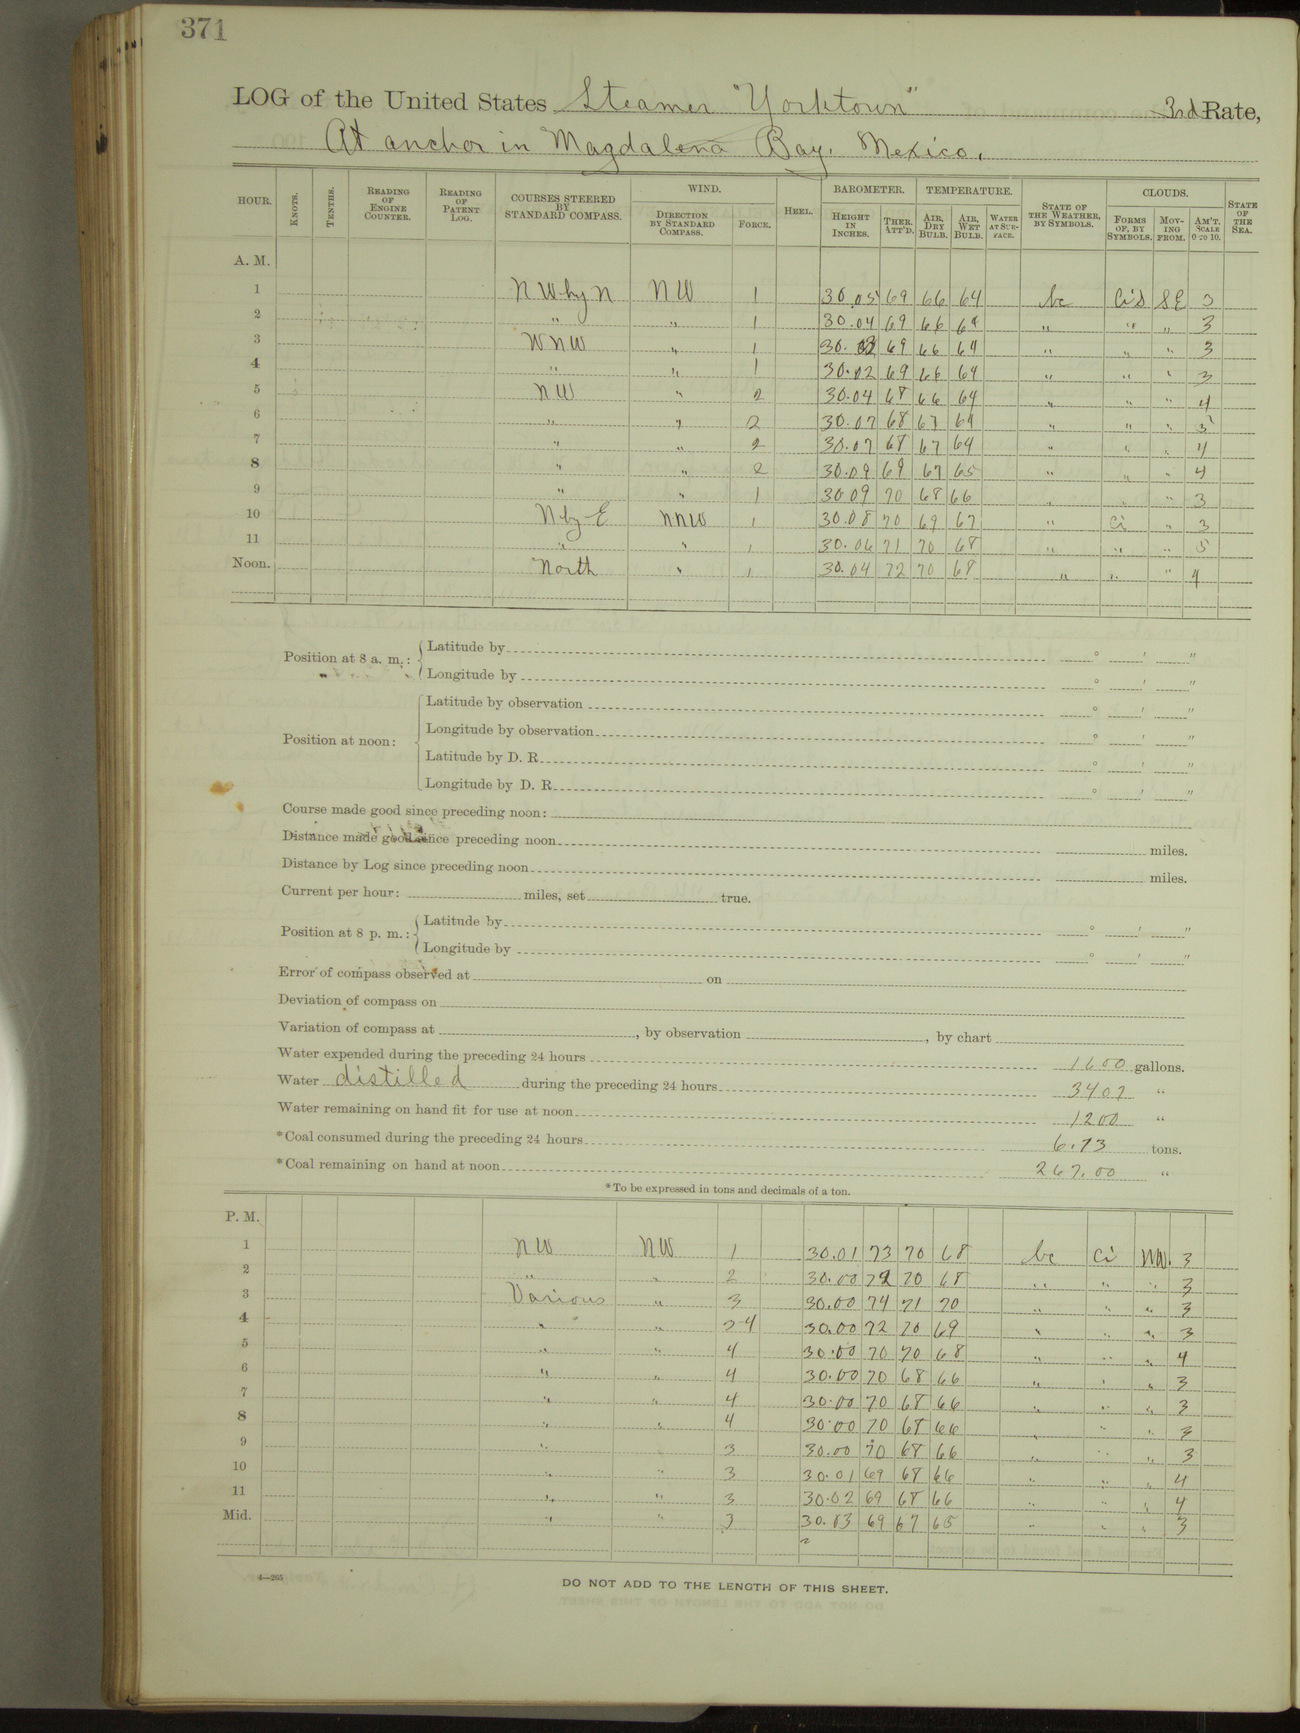 371
LOG of the United States Steamer "Yorktown" 3rd Rate,
At anchor in Magdalena Bay, Mexico.
HOUR. KNOTS. TENTHS. READING OF ENGINE COUNTER. READING OF PATENT LOG. COURSES STEERED BY STANDARD COMPASS. WIND. DIRECTION BY STANDARD COMPASS. FORCE. HEEL. BAROMETER. HEIGHT IN INCHES. THER. ATT'D. TEMPERATURE. AIR, DRY BULB. AIR, WET BULB. WATER AT SURFACE. STATE OF THE WEATHER, BY SYMBOLS. CLOUDS. FORMS OF, BY SYMBOLS. MOVING FROM. AM'T, SCALE 0 TO 10. STATE OF THE SEA.
A. M.
1 NW by N NW 1 30.05 69 66 64 bc Ci S SE 3
2 " " 1 30.04 69 66 64 " " " 3
3 WNW " 1 30.02 69 66 64 " " " 3
4 " " 1 30.02 69 66 64 " " " 3
5 NW " 2 30.04 68 66 64 " " " 4
6 " " 2 30.07 68 67 64 " " " 3
7 " " 2 30.07 68 67 64 " " " 4
8 " " 2 30.09 69 67 65 " " " 4
9 " " 1 30 09 70 68 66 " " " 3
10 N by E NNW 1 30.08 70 69 67 " Ci " 3
11 " " 1 30.06 71 70 68 " " " 5
Noon. North " 1 30.04 72 70 68 " " " 4
Position at 8 a. m.: Latitude by ° ' "
Longitude by ° ' "
Position at noon: Latitude by observation ° ' "
Longitude by observation ° ' "
Latitude by D. R. ° ' "
Longitude by D. R. ° ' "
Course made good since preceding noon:
Distance made good since preceding noon miles.
Distance by Log since preceding noon miles.
Current per hour: miles, set true.
Position at 8 p. m.: Latitude by ° ' "
Longitude by ° ' "
Error of compass observed at on
Deviation of compass on
Variation of compass at , by observation , by chart
Water expended during the preceding 24 hours 1600 gallons.
Water distilled during the preceding 24 hours 3407 "
Water remaining on hand fit for use at noon 1200 "
*Coal consumed during the preceding 24 hours 6.73 tons.
*Coal remaining on hand at noon 267.00 "
*To be expressed in tons and decimals of a ton.
P. M.
1 NW NW 1 30.01 73 70 68 bc Ci NW. 3
2 " " 2 30.00 72 70 68 " " " 3
3 Various " 3 30.00 74 71 70 " " " 3
4 " " 3-4 30.00 72 70 69 " " " 3
5 " " 4 30.00 70 70 68 " " " 4
6 " " 4 30.00 70 68 66 " " " 3
7 " " 4 30.00 70 68 66 " " " 3
8 " " 4 30.00 70 68 66 " " " 3
9 " " 3 30.00 70 68 66 " " " 3
10 " " 3 30.01 69 68 66 " " " 4
11 " " 3 30.02 69 68 66 " " " 4
Mid. " " 3 30.03 69 67 65 " " " 3
4—265
DO NOT ADD TO THE LENGTH OF THIS SHEET.